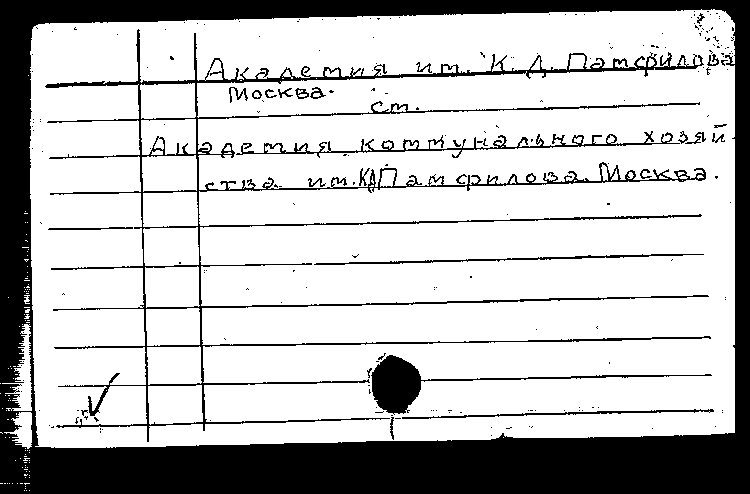 Академия им. К. Д. Памфилова
Москва.
см.
Академия коммунального хозяй-
ства им. КД Памфилова. Москва.